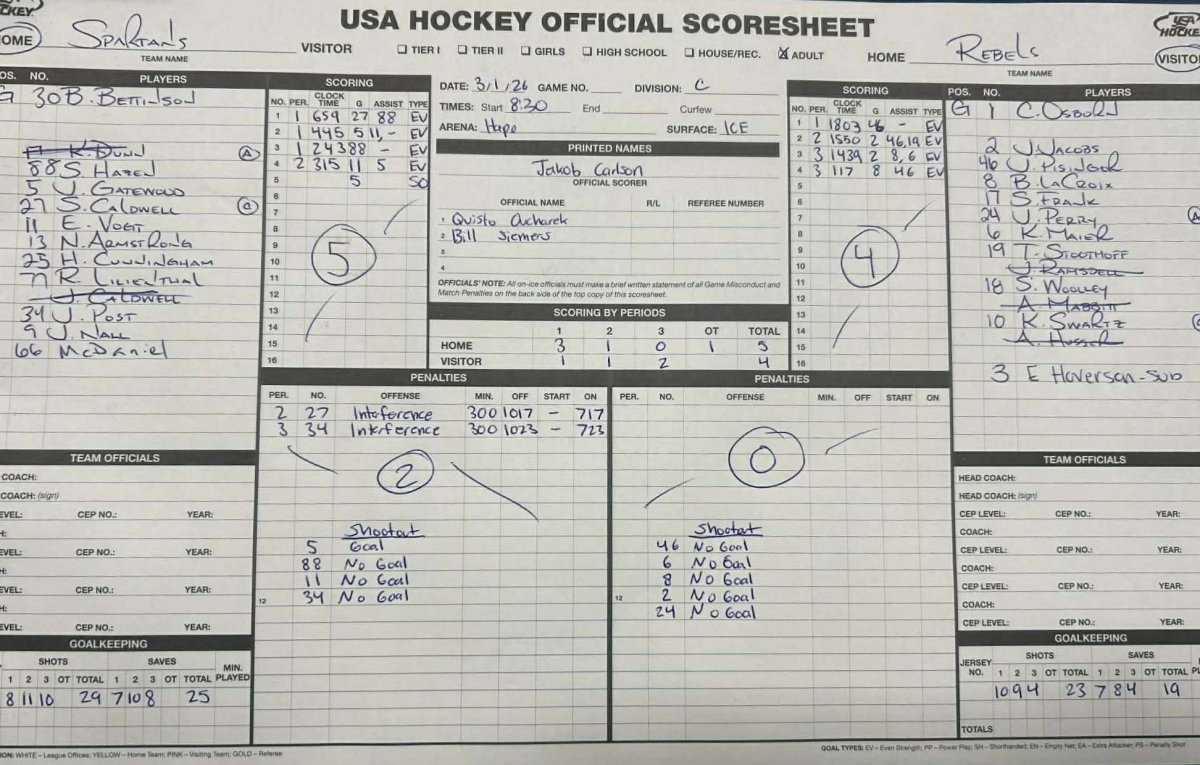 USA HOCKEY OFFICIAL SCORESHEET
CKEY
HOME Spartans VISITOR ☐ TIER I ☐ TIER II ☐ GIRLS ☐ HIGH SCHOOL ☐ HOUSE/REC. ☒ ADULT HOME Rebels VISITO
TEAM NAME TEAM NAME
OS. NO. PLAYERS
G 30 B. BETTINSON
K. DUNN A
88 S. HAZEN
5 J. GATEWOOD
27 S. CALDWELL C
11 E. VOGT
13 N. ARMSTRONG
25 H. CUNNINGHAM
77 R. LILIENTHAL
J. CALDWELL
34 J. POST
9 J. NALL
66 McDaniel
SCORING
NO. PER. CLOCK TIME G ASSIST TYPE
1 1 659 27 88 EV
2 1 445 5 11,- EV
3 1 243 88 - EV
4 2 315 11 5 EV
5 5 SO
6
7
8
9
10
11
12
13
14
15
16
5
DATE: 3/1/26 GAME NO. DIVISION: C
TIMES: Start 8:30 End Curfew
ARENA: Hapo SURFACE: ICE
PRINTED NAMES
Jakob Carlson
OFFICIAL SCORER
OFFICIAL NAME R/L REFEREE NUMBER
1 Quisto Cucharek
2 Bill Siemers
3
4
OFFICIALS' NOTE: All on-ice officials must make a brief written statement of all Game Misconduct and
Match Penalties on the back side of the top copy of this scoresheet.
SCORING BY PERIODS
1 2 3 OT TOTAL
HOME 3 1 0 1 5
VISITOR 1 1 2 4
SCORING
NO. PER. CLOCK TIME G ASSIST TYPE
1 1 1803 46 - EV
2 2 1550 2 46,19 EV
3 3 1439 2 8,6 EV
4 3 117 8 46 EV
5
6
7
8
9
10
11
12
13
14
15
16
4
POS. NO. PLAYERS
G 1 C. OSBORN
2 J. JACOBS
46 J. PISINGER
8 B. LACROIX
17 S. FRANK
24 J. PERRY
6 K. MAIER
19 T. STOOTHOFF
J. RAMSDELL
18 S. WOOLEY
A. MABBITT
10 K. SWARTZ
A. HUSSER
3 E Haverson-sub
PENALTIES
PER. NO. OFFENSE MIN. OFF START ON
2 27 Inteference 300 1017 - 717
3 34 Interference 300 1023 - 723
2
Shootout
5 Goal
88 No Goal
11 No Goal
12 34 No Goal
PENALTIES
PER. NO. OFFENSE MIN. OFF START ON
0
Shootout
46 No Goal
6 No Goal
8 No Goal
12 2 No Goal
24 No Goal
TEAM OFFICIALS
COACH:
COACH: (sign)
EVEL: CEP NO.: YEAR:
H:
EVEL: CEP NO.: YEAR:
H:
EVEL: CEP NO.: YEAR:
H:
EVEL: CEP NO.: YEAR:
GOALKEEPING
SHOTS SAVES MIN. PLAYED
1 2 3 OT TOTAL 1 2 3 OT TOTAL
8 11 10 29 7 10 8 25
TEAM OFFICIALS
HEAD COACH:
HEAD COACH: (sign)
CEP LEVEL: CEP NO.: YEAR:
COACH:
CEP LEVEL: CEP NO.: YEAR:
COACH:
CEP LEVEL: CEP NO.: YEAR:
COACH:
CEP LEVEL: CEP NO.: YEAR:
GOALKEEPING
JERSEY NO. SHOTS SAVES
1 2 3 OT TOTAL 1 2 3 OT TOTAL
10 9 4 23 7 8 4 19
TOTALS
ION: WHITE – League Offices; YELLOW – Home Team; PINK – Visiting Team; GOLD – Referee
GOAL TYPES: EV – Even Strength; PP – Power Play; SH – Shorthanded; EN – Empty Net; EA – Extra Attacker; PS – Penalty Shot